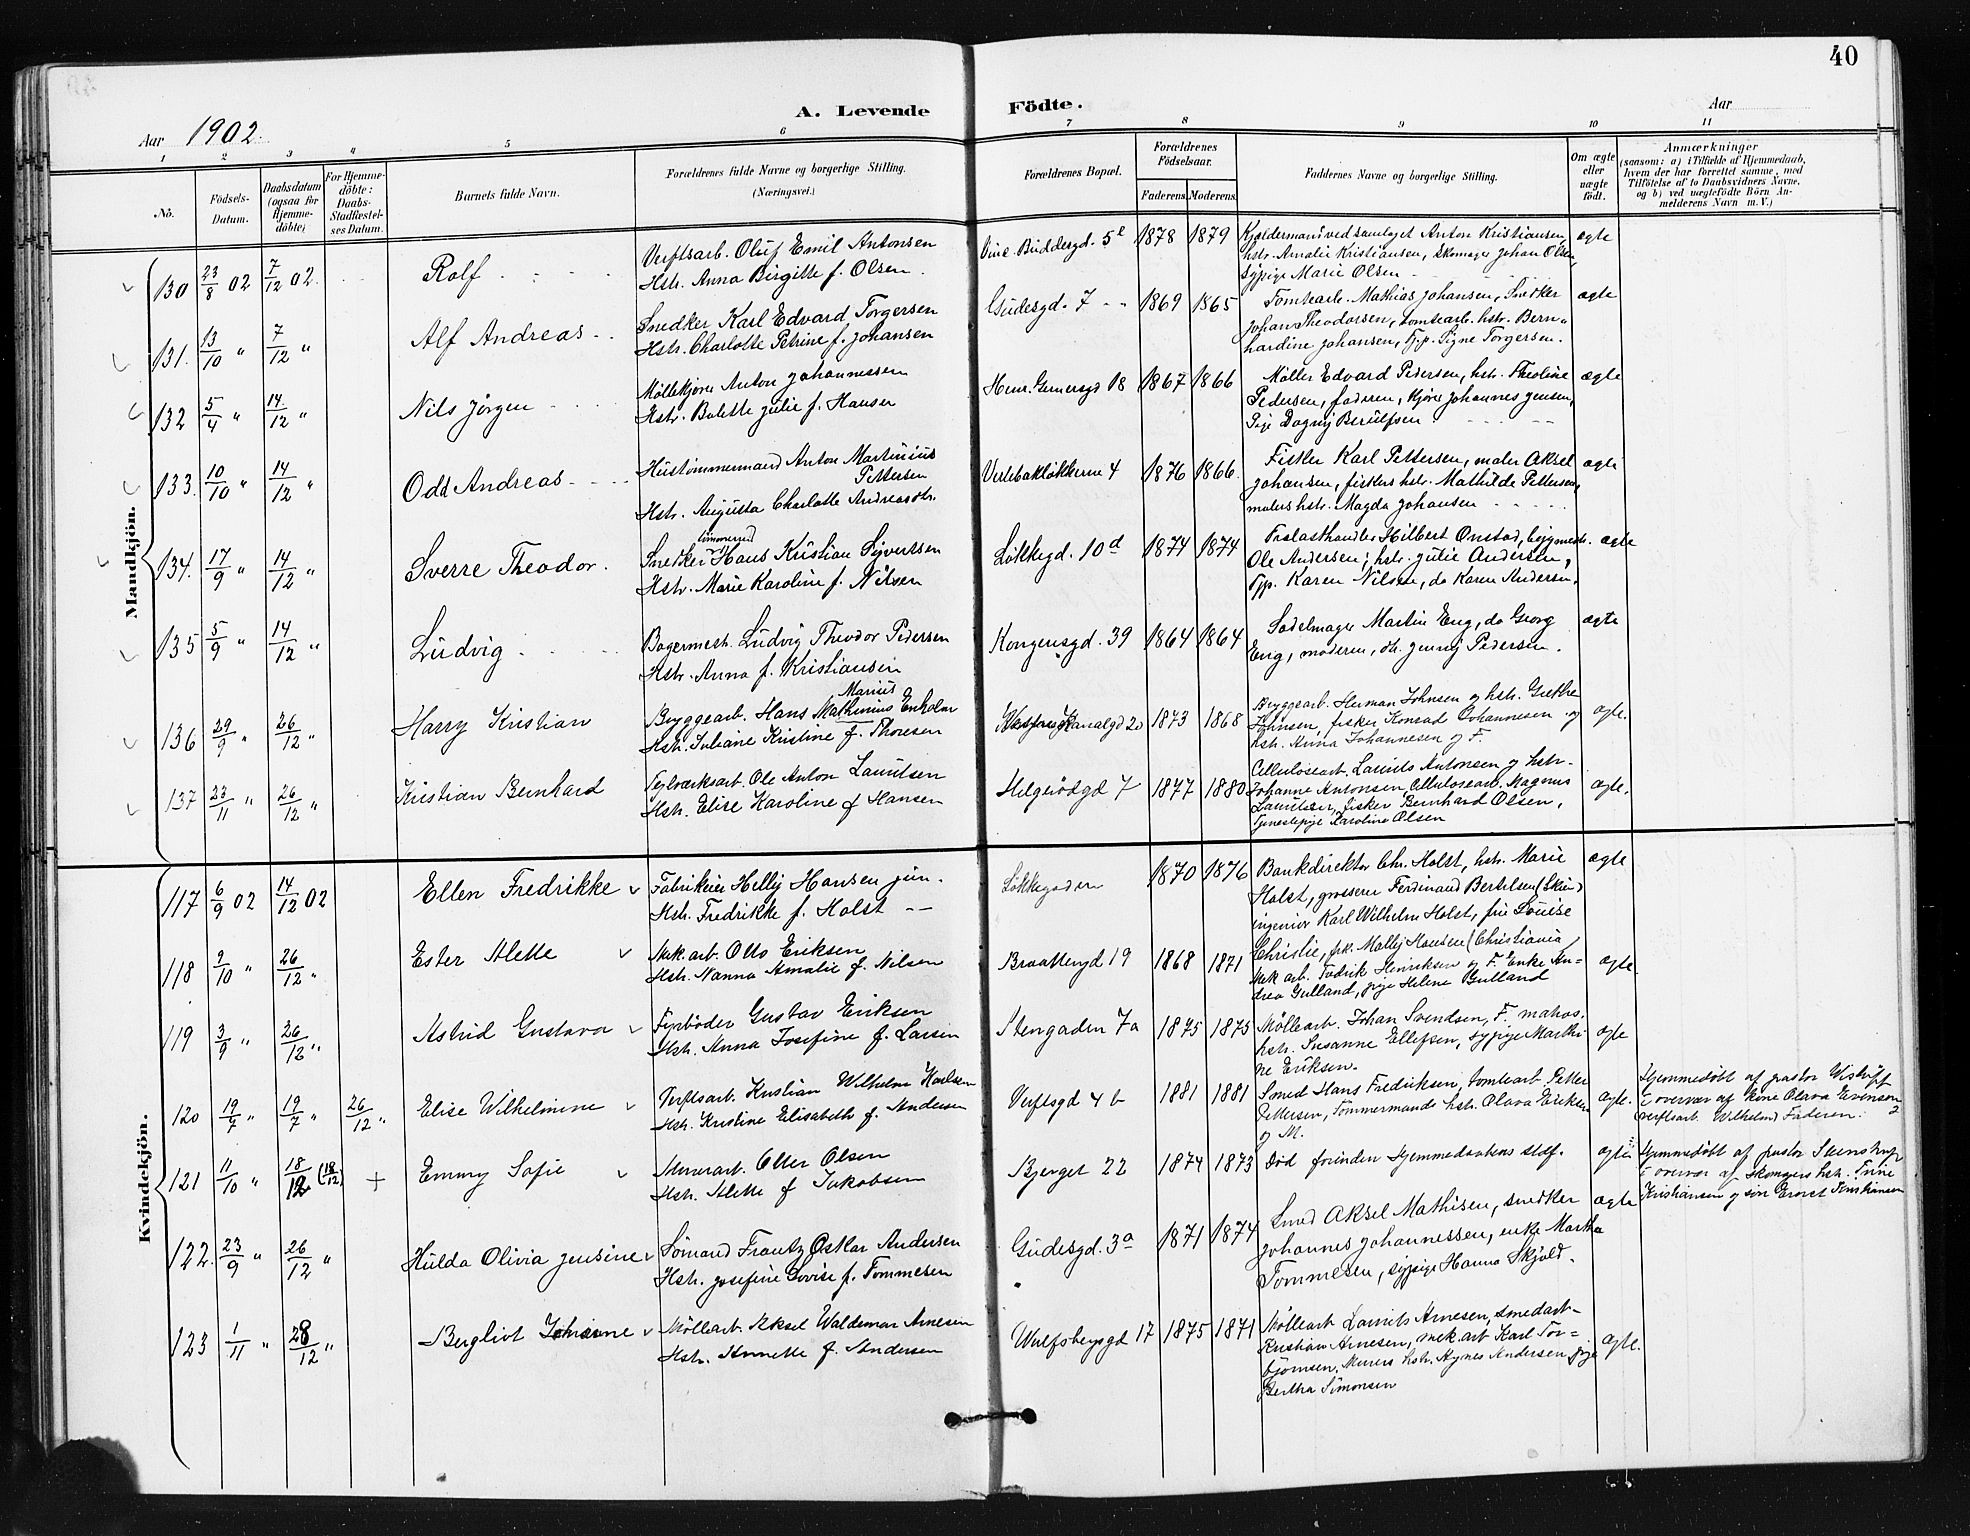 40
A. Levende Födte.
Aar 1902.
Aar
1 2 3 4 5 6 7 8 9 10 11
No.
Födsels-Datum.
Daabsdatum (ogsaa for Hjemme-döbte)
For Hjemme-döbte: Daabs-Stadfæstel-ses Datum.
Barnets fulde Navn.
Forældrenes fulde Navne og borgerlige Stilling. (Næringsvei.)
Forældrenes Bopæl.
Forældrenes Födselsaar.
Faderens. Moderens.
Faddernes Navne og borgerlige Stilling.
Om ægte eller uægte født.
Anmærkninger
(saasom: a) i Tilfælde af Hjemmedaab,
hvem der har forrettet samme, med
Tilföielse af to Daabsvidners Navne,
og b) ved uægtefödte Börn An-
melderens Navn m. V.)
Mandkjön.
130 23/8 02 7/12 02 Rolf
Verftsarb. Oluf Emil Antonsen
Hstr. Anna Birgitte f. Olsen.
Buddesgd. 5 1878 1879
Kjældermand ved samlaget Anton Kristiansen,
hstr. Amalie Kristiansen, Skomager Johan Olsen,
Sypige Marie Olsen
ægte
131. 13/10 " 7/12 " Alf Andreas
Snedker Karl Edvard Torgersen
Hstr. Charlotte Petrine f. Johansen
Gudesgd. 7 1869 1865
Tomtearb. Mathias Johansen, Snedker
Johan Theodorsen, tomtearb. hstr. Bern-
hardine Johansen, Tjp. Signe Torgersen.
ægte
132 5/4 " 14/12 " Nils Jörgen
Möllekjörer Anton Johannessen
Hstr. Bolette Julie f. Hansen
Henr. Gernersgd 18 1867 1866
Möller Edvard Pedersen, hstr. Theoline
Pedersen, faderen, Kjörer Johannes Jensen,
Pige Dagny Berulfsen
ægte
133. 10/10 " 14/12 " Odd Andreas
Hustömmermand Anton Martinius
Pettersen
Hstr. Augusta Charlotte Andreasdtr.
Verlebakløkkerne 4 1876 1866.
Fisker Karl Pettersen, maler Aksel
Johansen, fiskers hstr. Mathilde Pettersen,
malers hstr. Magda Johansen
ægte
134. 17/9 " 14/12 " Sverre Theodor.
tømmermd
Snedker Hans Kristian Syvertsen
Hstr. Marie Karoline f. Nilsen
Løkkegd. 10d 1874 1874
Trælasthandler Hilbert Onstad, bygmestr.
Ole Andersen, hstr. Julie Andersen,
Tjp. Karen Nilsen, do Karen Andersen.
ægte
135 5/9 " 14/12 " Ludvig
Bagermestr. Ludvig Theodor Pedersen
Hstr. Anna f. Kristiansen
Kongensgd. 39 1864 1864
Sadelmager Martin Eng, do Georg
Eng, moderen, dtr. Jenny Pedersen.
ægte
136 29/9 " 26/12 " Harry Kristian
Marius
Bryggearb. Hans Mathinius Enholm
Hstr. Juliane Kristine f. Thoresen
Kanalgd 20 1873 1868
Bryggearb. Herman Johnsen og hstr. Grethe
Johnsen, fisker Konrad Johannesen og
hstr. Anna Johannesen og F.
ægte.
137 23/11 " 26/12 " Kristian Bernhard
Teglværksarb. Ole Anton Lauritsen
Hstr. Elise Karoline f Hansen
Helgerödgd 7 1877 1880
Cellulosearb. Laurits Antonsen og hstr.
Johanne Antonsen Cellulosearb. Magnus
Lauritsen, fisker Bernhard Olsen,
Tjenestepige Karoline Olsen
ægte.
Kvindekjön.
117 6/9 02 14/12 02 Ellen Fredrikke
Fabrikeier Helly Hansen jun.
Hstr. Fredrikke f. Holst
Løkkegaden 1870 1876
Bankdirektør Chr. Holst, hstr. Marie
Holst, grosserer Ferdinand Bertelsen (Skien)
ingeniør Karl Wilhelm Holst, fru Louise
Christie, frk. Mally Hansen (Christiania
ægte
118 2/10 " 26/12 " Ester Alette
Mek. arb. Otto Eriksen
Hstr. Nanna Amalie f. Nilsen
Braattengd 19 1868 1871
Mek arb. Fredrik Henriksen og F. Enke An-
drea Gulland, pige Helene Gulland
ægte.
119 3/9 " 26/12 " Astrid Gustava
Fyrböder Gustav Eriksen
Hstr. Anna Josefine f. Larsen
Stengaden 7a 1875 1875
Möllearb. Johan Svendsen, F. matros.
hstr. Susanne Ellefsen, sypige Marthi-
ne Eriksen.
ægte
120 19/7 " 19/7 " 26/12 " Elise Wilhelmine
Verftsarb. Kristian Wilhelm Karlsen
Hstr. Kristine Elisabeth f. Andersen
Verftsgd 4 b 1881 1881
Smed Hans Fredriksen, tomtearb Petter
Pettersen, Tömmermands hstr. Olava Eriksen
og M.
ægte.
Hjemmedöbt af pastor
i overvær af kone Olava Evensen
(verftsarb. Wilhelm) Faderen.
121 11/10 " 18/12 (18/12) + Emmy Sofie
Murerarb. Otter Olsen
Hstr. Alette f Jakobsen
Bjerget 22 1874 1873
Död forinden Hjemmedaabens stdf.
ægte
Hjemmedöbt af pastor Steenstrup
i overvær af skomagers hstr. Trine
Kristiansen og sön Ernst Kristiansen
122. 23/9 " 26/12 " Hulda Olivia Jensine
Sömand Frantz Oskar Andersen
Hstr. Josefine Lovise f. Tommesen
Gudesgd. 3a 1871 1874
Smed Aksel Mathisen, snedker
Johannes Johannessen, enke Martha
Tommesen, sypige Hanna Skjold.
ægte
123 1/11 " 28/12 " Bergliot Johanne
Möllearb. Aksel Waldemar Arnesen
Hstr. Annette f. Andersen
Wulfsbergsgd 17 1875 1871
Möllearb Laurits Arnesen, smedarb-
Kristian Arnesen, mek. arb Karl Tor-
björnsen, Murers hstr. Agnes Andersen pige
Bertha Simonsen
ægte.